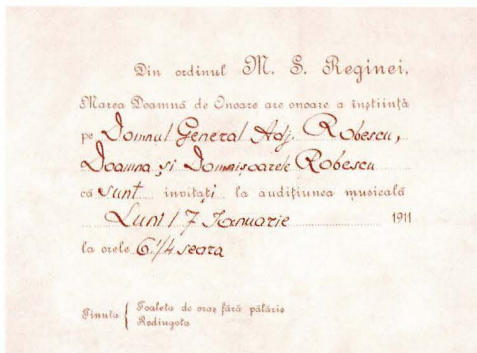 Din ordinul M. S. Reginei,
Marea Doamnă de Onoare are onoare a înștiință
pe Domnul General Adj. Robescu,
Doamna și Domnișoarele Robescu
că sunt invitați la audițiunea musicală
Luni 17 Ianuarie 1911
la orele 6 1/4 seara
Ținuta { Toaleta de oraș fără pălărie
Redingota